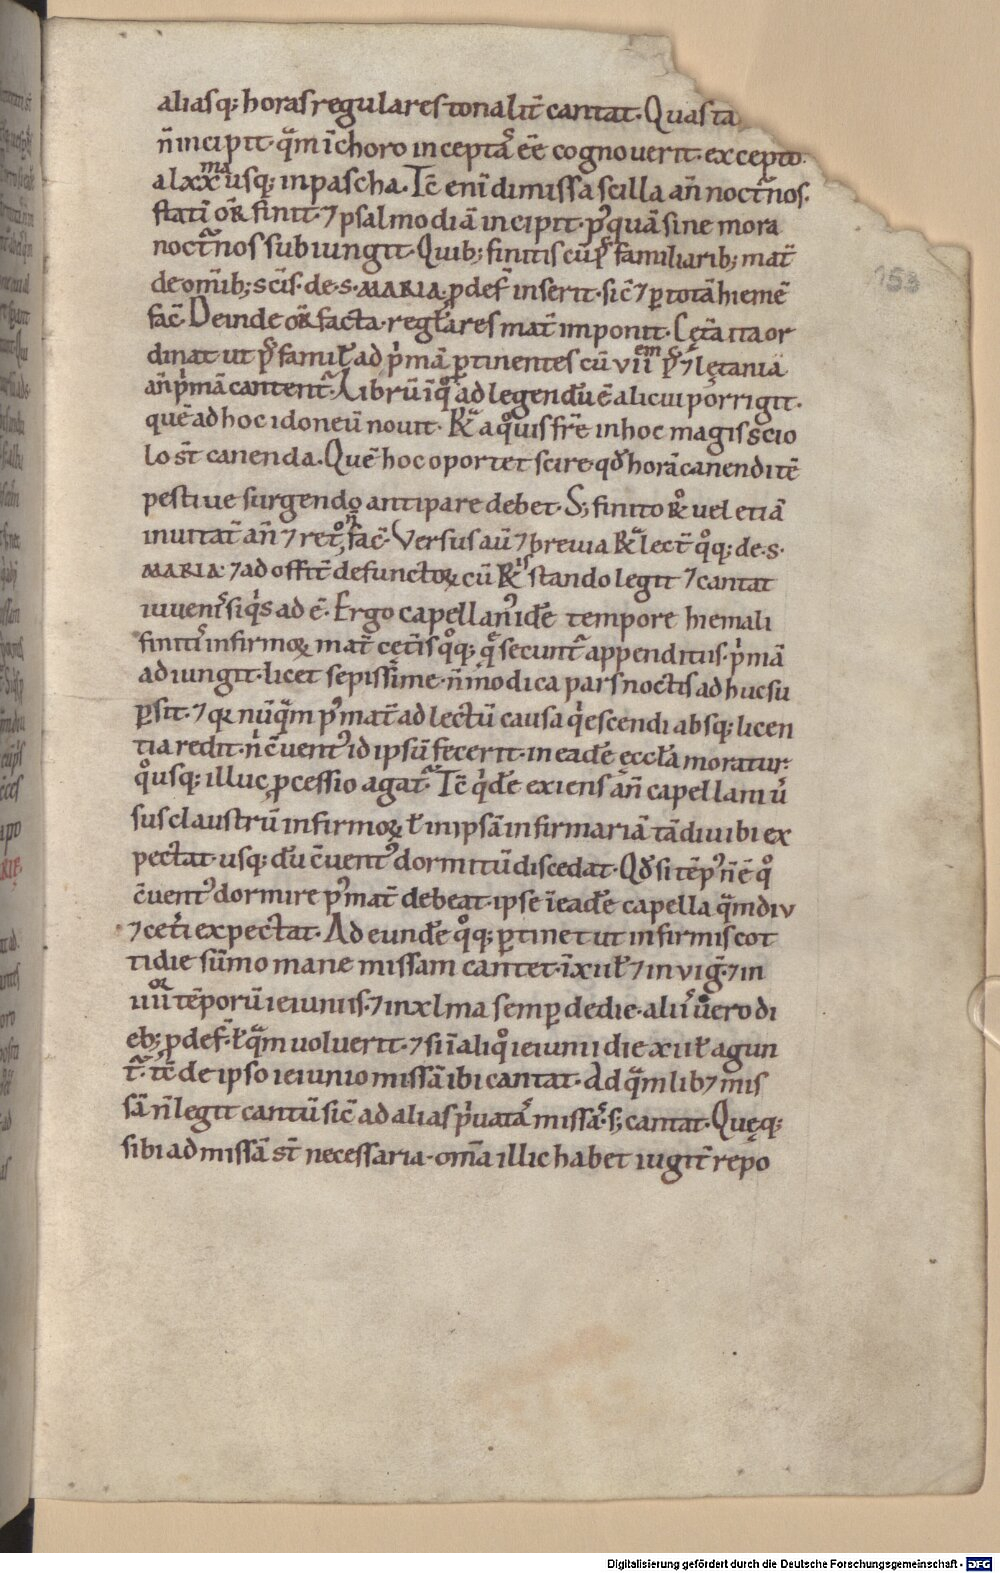 aliasq; horas regulares tonalit̄ cantat. Quas ta
n̄ incipit. qͣm ī choro inceptaſ eē cognouerit. excepto
a lxxͫᵃ usq; in pascha. Tc̄ enī dimissa scilla añ noct̄nos.
statī or̄ finit. ⁊ psalmodiā incipit. pꝰquā sine mora
noct̄nos subiungit. Quib; finitis cū pꝰ familiarib; mat̄
de om̄ib; sc̄is. de .s. MARIA. ꝓ def̄ inserit. sic̄ ⁊ ꝑ totā hiemē
fac̄. Deinde or̄ facta. regłares mat̄ imponit. Lęt̄a ita or
dinat ut pꝰ famił ad pͥmā ꝑtinentes cū viiᵉᵐ pꝰ ⁊ lętania
añ pͥmā cantent᷑. Librū ī qͦ ad legendū ē alicui porrigit.
quē ad hoc idoneū nouit. R̷ᵃ a qͦuis fr̄e in hoc magis scio
lo st̄ canenda. Quē hoc oportet scire qđ horā canendi tē
pestiue surgendo antipare debet. S; finito R̷ͦ uel etiā
inuitat̄ añ ⁊ retͦ, n̄ fac̄. Versus aū ⁊ breuia R̷ᵃ lect̄ qͦq; de .s.
MARIA. ⁊ ad offit̄ defunctoꝝ cū R̷ⁱˢ stando legit ⁊ cantat
iuueniſ siqͥs ad ē. Ergo capellanꝰ idē tempore hiemali
finitiſ infirmoꝝ mat̄ cęt̄is qͦq; qͤ secunt᷑ appenditus. pͥmā
adiungit. licet sepissīme n̄ modica pars noctis ad huc su
ꝑsit. ⁊ qꝛ nūqͣm pꝰ mat̄ ad lectū causa qͥescendi absq; licen
tia redit. nͥ c̄uentꝰ id ipsū fecerit. in eadē ęccła moratur.
qͦusq; illuc ꝓcessio agat᷑. Tc̄ qͥdē exiens añ capellam ū
sus claustrū infirmoꝝ ł in ipsā infirmariā tādiu ibi ex
pectat. usq; dū c̄uentꝰ dormitū discedat. Qđ si tēpꝰ n̄ ē qͦ
c̄uentꝰ dormire pꝰ mat̄ debeat. ipse ī eadē capella qͣmdiu
⁊ cet̄i expectat. Ad eundē qͦq; ꝑtinet ut infirmis cot
tidie sūmo mane missam cantet. ī xii ł ⁊ in viḡ. ⁊ in
iiiiᵒʳ tēporū ieiuniis. ⁊ in xlma semꝑ de die. aliiſ uero di
eb; ꝓ def̄. ł qͣm uoluerit. ⁊ si ī aliqͦ ieiunii die xii ł agun
t᷑. tc̄ de ipso ieiunio missā ibi cantat. Ad qͣmlib; mis
sā n̄ legit cantū sic̄ ad alias pͥuataſ missaſ. s; cantat. Quęq;
sibi ad missā st̄ necessaria. om̄a illic habet iugit̄ repo
153
Digitalisierung gefördert durch die Deutsche Forschungsgemeinschaft - DFG